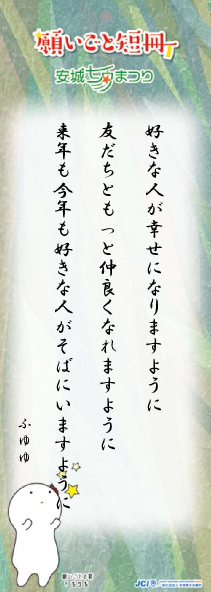 願いごと短冊
安城七夕まつり
好きな人が幸せになりますように
友だちともっと仲良くなれますように
来年も今年も好きな人がそばにいますように
ふゆゆ
JCI